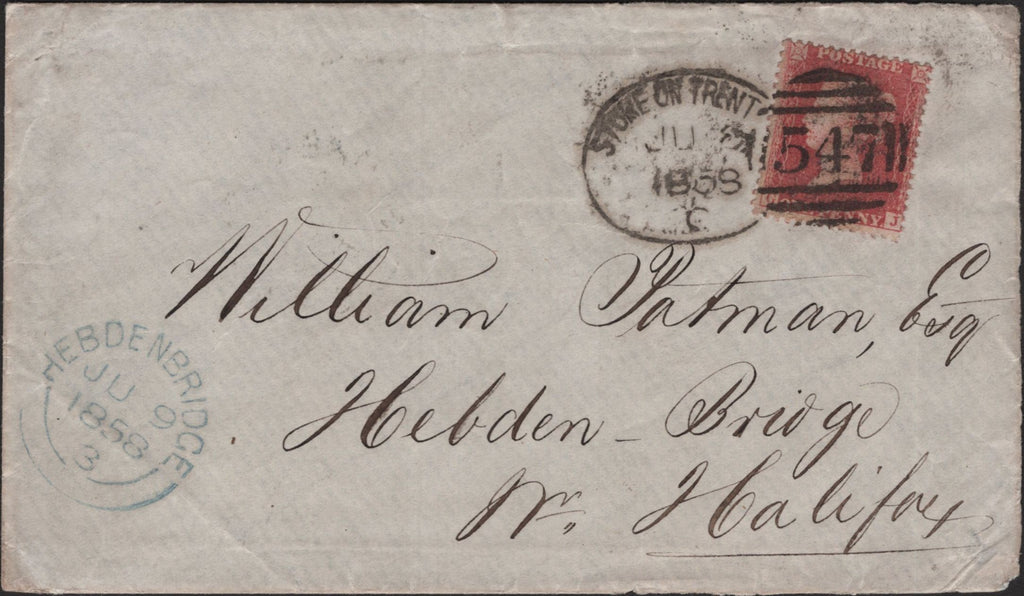 POSTAGE
STOKE ON TRENT
JU
1858
C
547
NY J
William Patman, Esq
Hebden - Bridge
Nr. Halifax
HEBDENBRIDGE
JU 9
1858
3